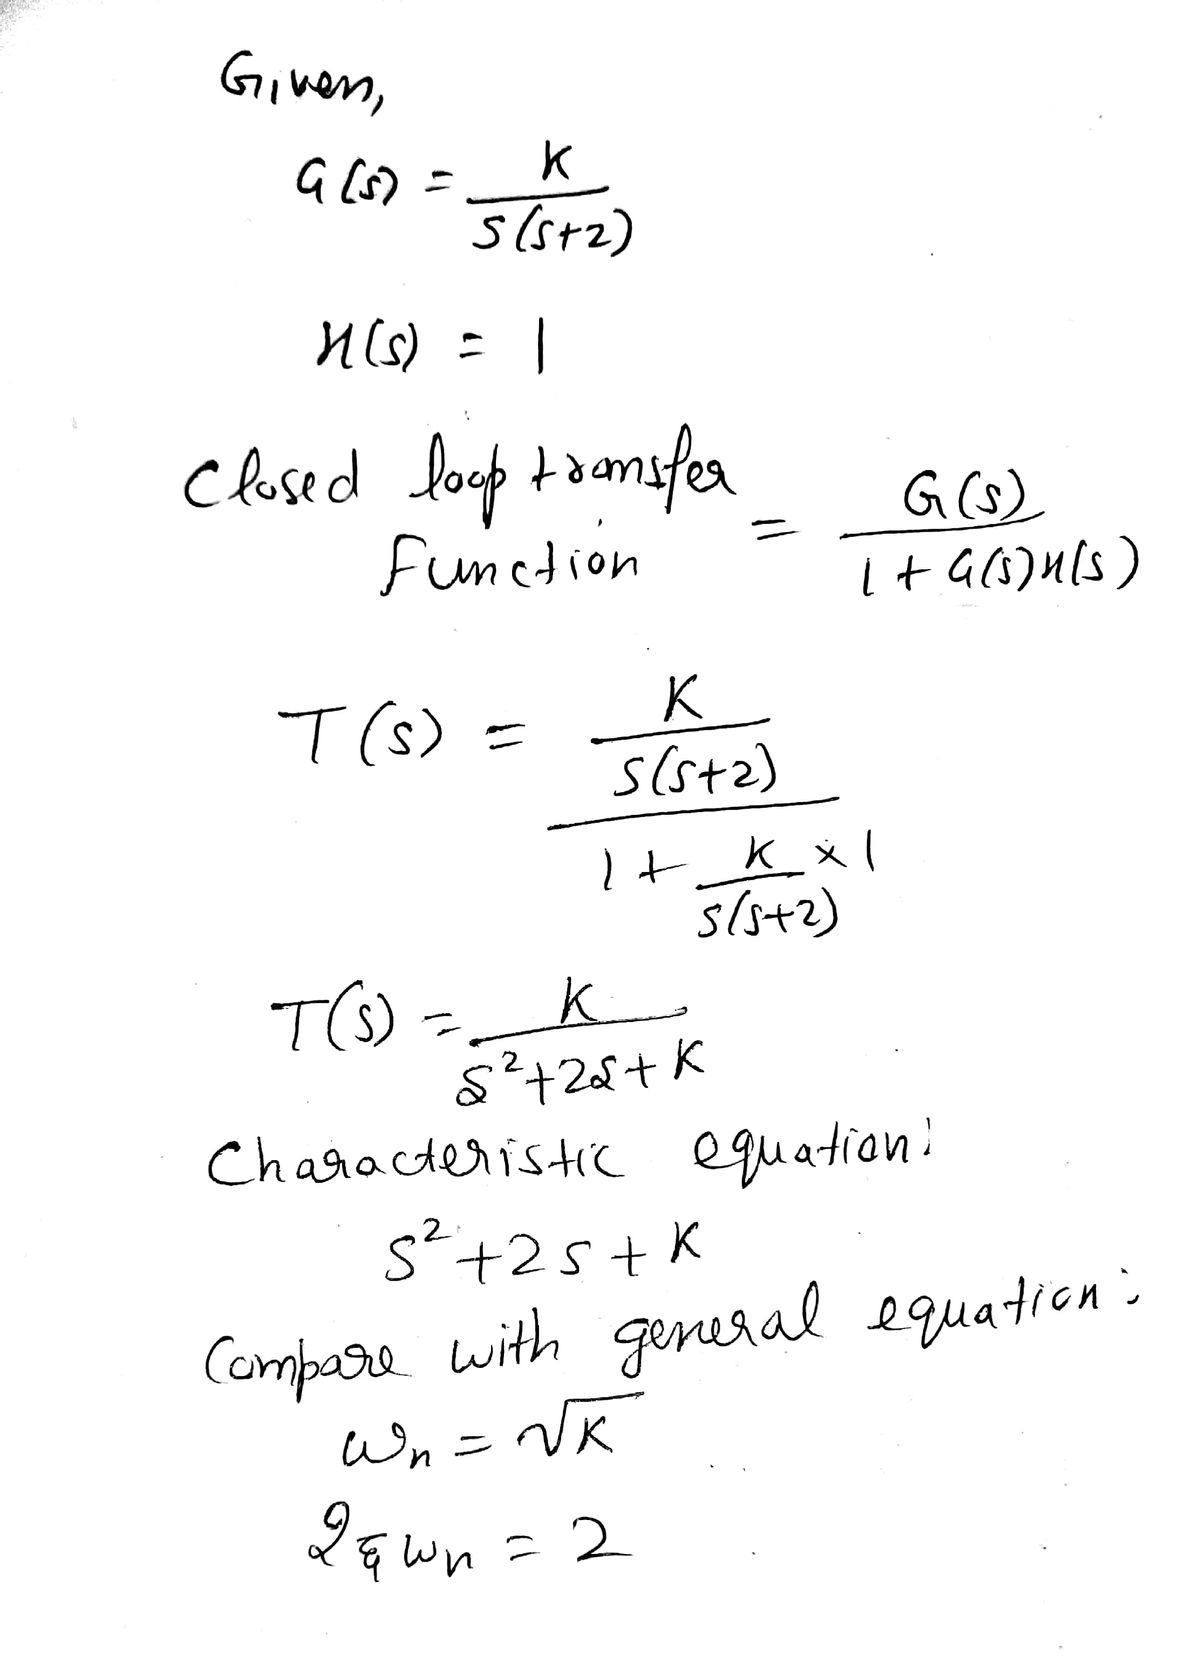 Given,
G(s) = K / s(s+2)
H(s) = 1
Closed loop transfer Function = G(s) / 1 + G(s)H(s)
T(s) = K / s(s+2) / 1 + K / s(s+2) × 1
T(s) = K / s²+2s+K
Characteristic equation:
s²+2s+K
Compare with general equation:
ωn = √K
2ξωn = 2